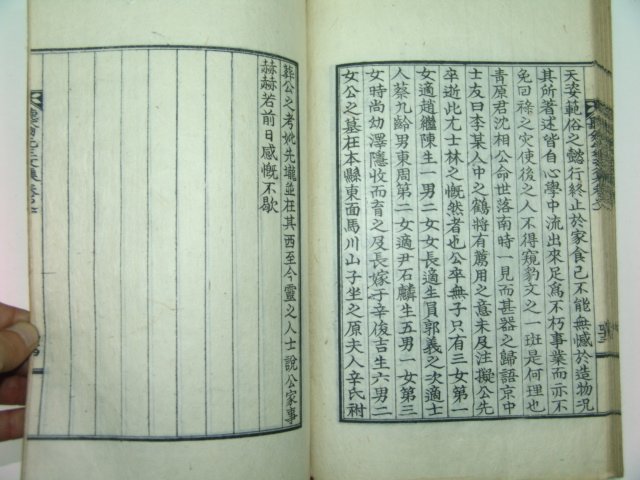 天姿範俗之懿行終止於家食已不能無憾於造物况
其所著述皆自心學中流出來足爲不朽事業而亦不
免回祿之灾使後之人不得窺豹文之一班是何理也
靑原君沈相公命世落南時一見而甚器之歸語京中
士友曰李某人中之鶴將有薦用之意未及注擬公先
卒逝此尤士林之慨然者也公卒無子只有三女第一
女適趙繼陳生一男二女女長適生員郭義之次適士
人蔡九齡男東周第二女適尹石麟生五男一女第三
女時尚幼澤隱收而育之及長嫁于辛俊吉生六男二
女公之墓在本縣東面馬川山子坐之原夫人辛氏祔
葬公之考妣先壠並在其西至今靈之人士說公家事
赫赫若前日感慨不歇